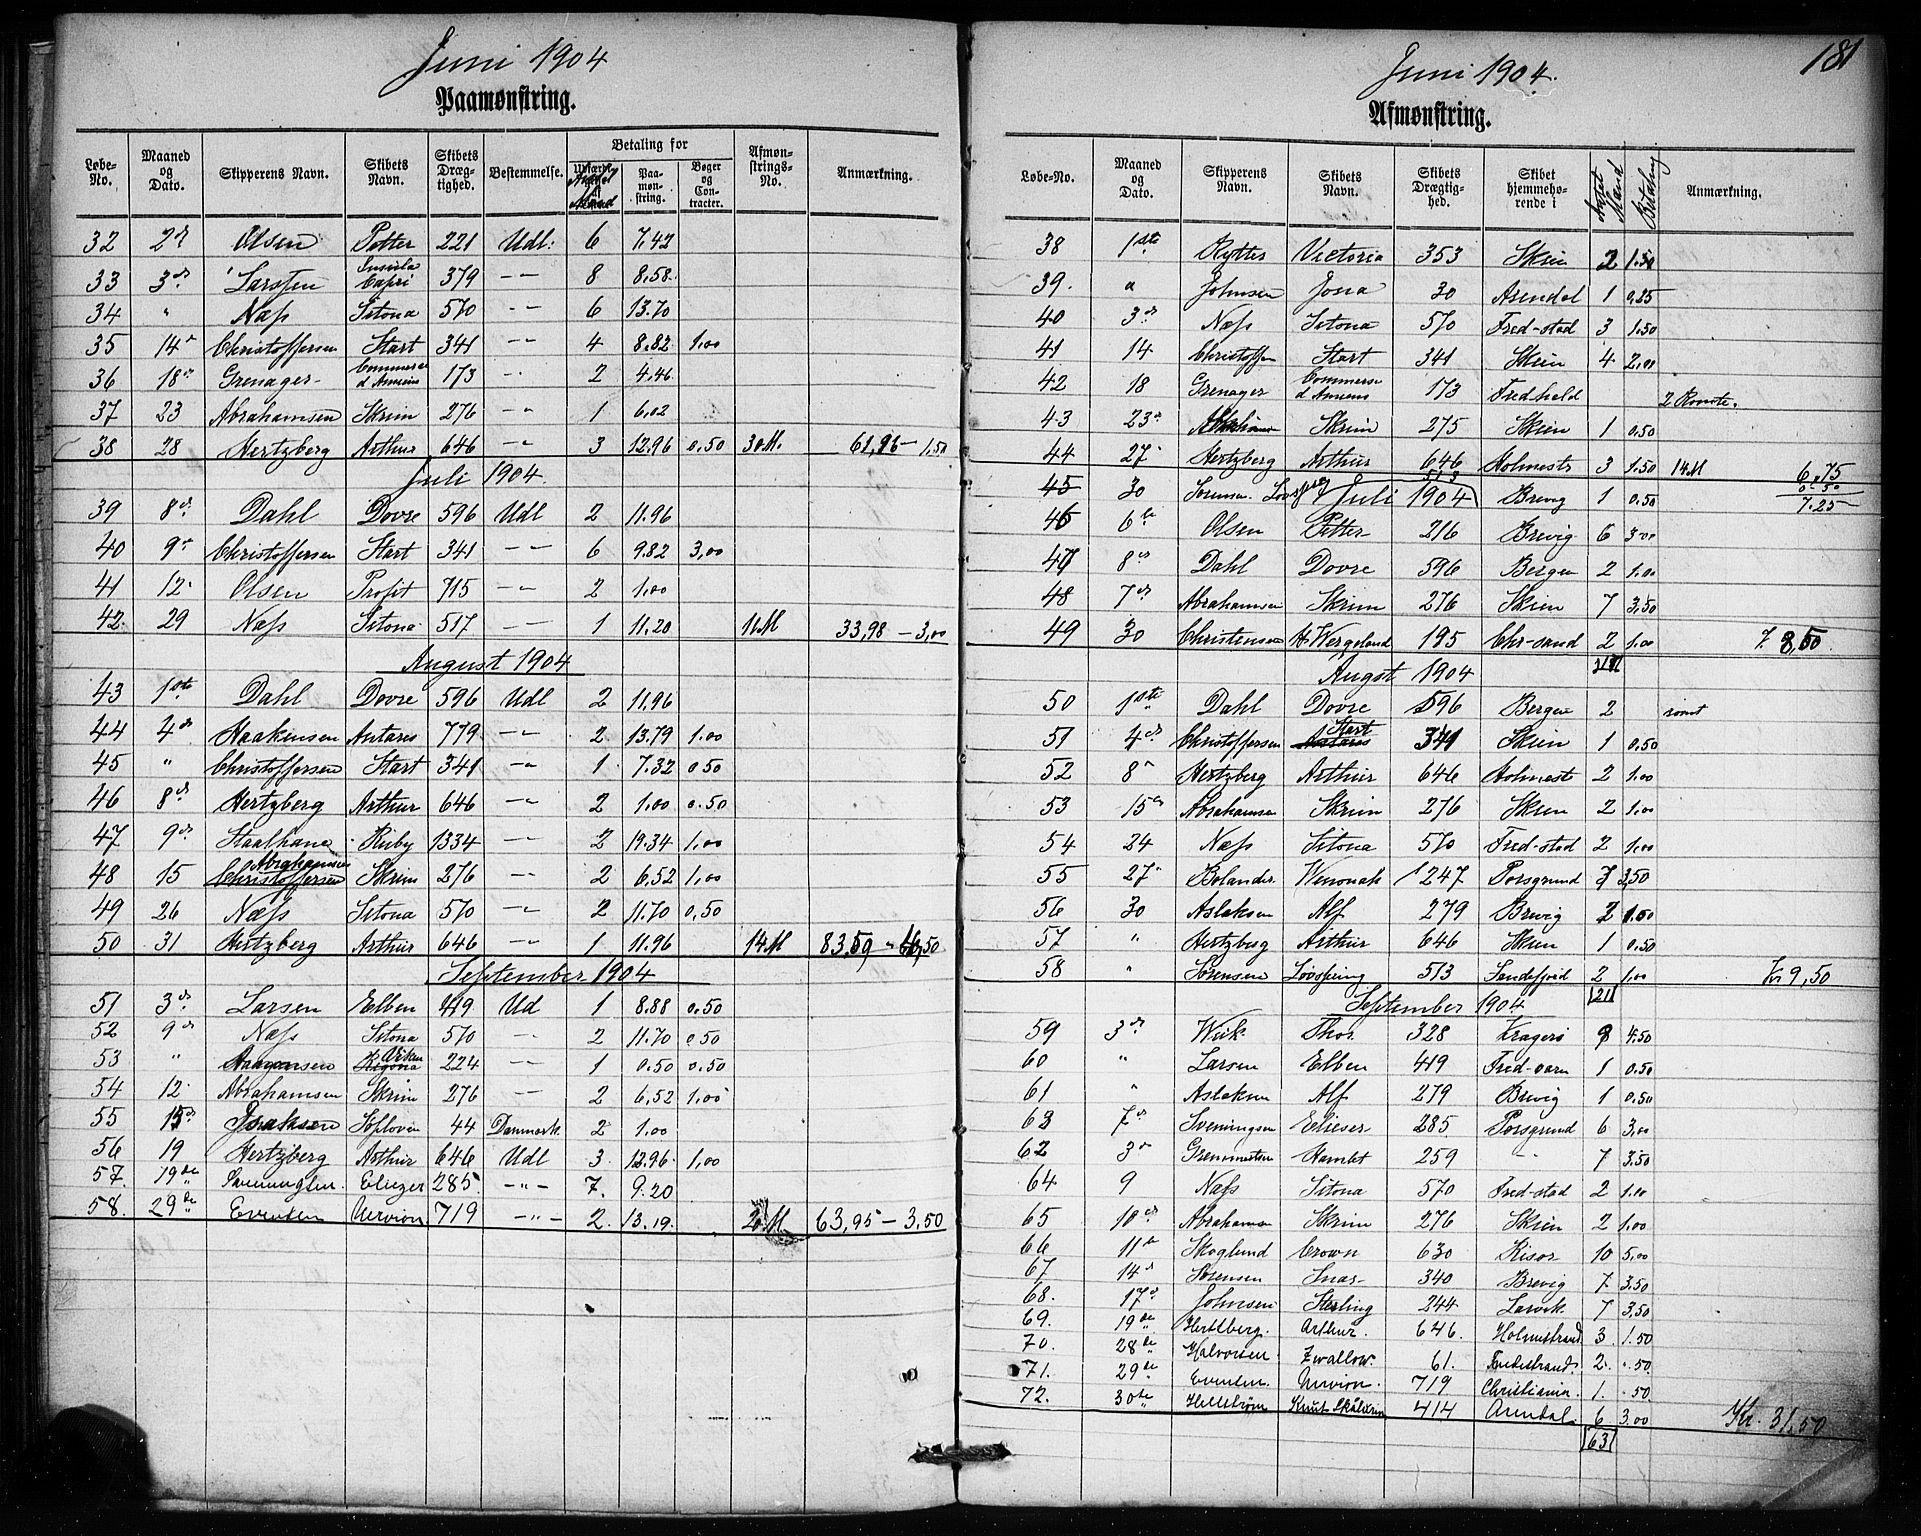 Juni 1904
Paamønstring.
Løbe-No. Maaned og Dato. Skipperens Navn. Skibets Navn. Skibets Drægtighed. Bestemmelse. Betaling for Antal Mand Paamønstring. Bøger og Contracter. Afmønstrings-No. Anmærkning.
32 2dn Olsen Petter 221 Udl: 6 7.42
33 3dn Larssen Insula Capri 379 -"- 8 8.58
34 " Næss Sitona 570 -"- 6 13.70
35 14 Christoffersen Start 341 -"- 4 8.82 1,00
36 18 Grenager 173 -"- 2 4.46
37 23 Abrahamsen Skrim 276 -"- 1 6,02
38 28 Hertzberg Arthur 646 -"- 3 12.96 0,50 30 M. 61,96 - 1,50
Juli 1904
39 8 Dahl Dovre 596 Udl 2 11.96
40 9 Christoffersen Start 341 -"- 6 9.82 3,00
41 12 Olsen Profit 715 -"- 2 1.00
42 29 Næss Sitona 517 -"- 1 11.20 11 M 33,98 - 3,00
August 1904
43 1ste Dahl Dovre 596 Udl 2 11,96
44 4 Haakensen Antares 779 -"- 2 13.79 1.00
45 " Christoffersen Start 341 -"- 1 7.32 0.50
46 8 Hertzberg Arthur 646 -"- 2 1.00 0.50
47 9 Staalhane Ruby 1334 -"- 2 19.34 1,00
48 15 Christoffersen Abrahamsen Skrim 276 -"- 2 6,52 1,00
49 26 Næss Sitona 570 -"- 2 11.70 0,50
50 31 Hertzberg Arthur 646 -"- 1 11.96 14 M 83.59
September 1904
51 3 Larsen Elben 419 Ud 1 8.88 0.50
52 9 Næss Sitona 570 -"- 2 11.70 0,50
53 " 224 -"- 1 0.50 0.50
54 12 Abrahamsen Skrim 276 -"- 2 6,52 1,00
55 15 Isaksen 44 Danmark 2 1.00
56 19 Hertzberg Arthur 646 Udl 3 12.96 1,00
57. 19de Eliezer 285 -"- 7. 9.20
58. 29de Evensen 719 -"- 2. 13.19. 63,95 - 3,50
181
Juni 1904.
Afmønstring.
Løbe-No. Maaned og Dato. Skipperens Navn. Skibets Navn. Skibets Drægtighed. Skibet hjemmehørende i Antal Mand Betaling Anmærkning.
38 1ste Rytter Victoria 353 Skien 2 1.50
39. " Johnsen Jona 30 Arendal 1 0,25
40 3 Næss Sitona 570 Fred-stad 3 1.50
41 14 Christoffersen Start 341 Skien 4 2,00
42 18 Grenager 173 Fredhald 2 Rømte.
43 23 Abrahamsen Skrim 275 Skien 1 0.50
44 27 Hertzberg Arthur 646 Holmestr 3 1.50 14 M 6,75
45 30 Sørensen 513 Brevig 1 0.50 0.50
7.25
Juli 1904
46 6 Olsen Petter 216 Brevig 6 3.00
47 8 Dahl Dovre 596 Bergen 2 1.00
48 7 Abrahamsen Skrim 276 Skien 7 3.50
49 30 Christensen H. Wergeland 195 Chr-sand 2 1.00 8,50
18
Augst 1904
50 1ste Dahl Dovre 596 Bergen 2 rømt
51 4 Christoffersen Antares Start 341 Skien 1 0.50
52 8 Hertzberg Arthur 646 Holmest 2 1.00
53 15 Abrahamsen Skrim 276 Skien 2 1.00
54 24 Næss Sitona 570 Fred-stad 2 1.00
55 27 Bolander Wenonah 1247 Porsgrund 7 3,50
56 30 Aslaksen Alf 279 Brevig 2 1.00
57 " Hertzberg Arthur 646 Skien 1 0.50
58 " Sørensen Lövspring 513 Sandefjord 2 1,00 Kr 9,50
21
September 1904
59 3 Wiik Thor 328 Kragerø 9 4,50
60 " Larsen Elben 419 Fred-værn 1 0.50
61 " Aslaksen Alf 279 Brevig 1 0.50
63 7 Sveningsen Elieser 285 Porsgrund 6 3,00
62 3 Hamlet 259 " 7 3.50
64 9 Næss Sitona 570 Fred-stad 2 1.00
65 10 Abrahamsen Skrim 276 Skien 2 1,00
66 11 Skoglund Crown 630 Risør 10 5,00
67 14 Sørensen Snar 340 Brevig 7 3.50
68. 17 Johnsen Sterling 244 Larvik 7 3,50
69. 19de Hertzberg. Arthur. 646. Holmestrand 3. 1.50
70. 28de Halvorsen Zwallow. 61. 2. .50
71. 29de Evensen 719 Christiania. 1. .50
72. 30te Hellstrøm Knut Skaluren 414 Arendal 6 3.00 Kr. 31,50
63